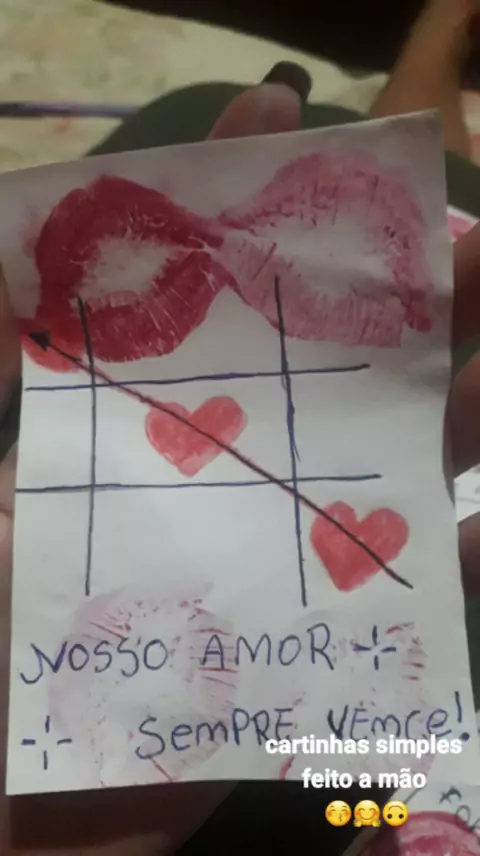 NOSSO AMOR
SEMPRE VEMCE!
cartinhas simples
feito a mão
😚🤗🙃